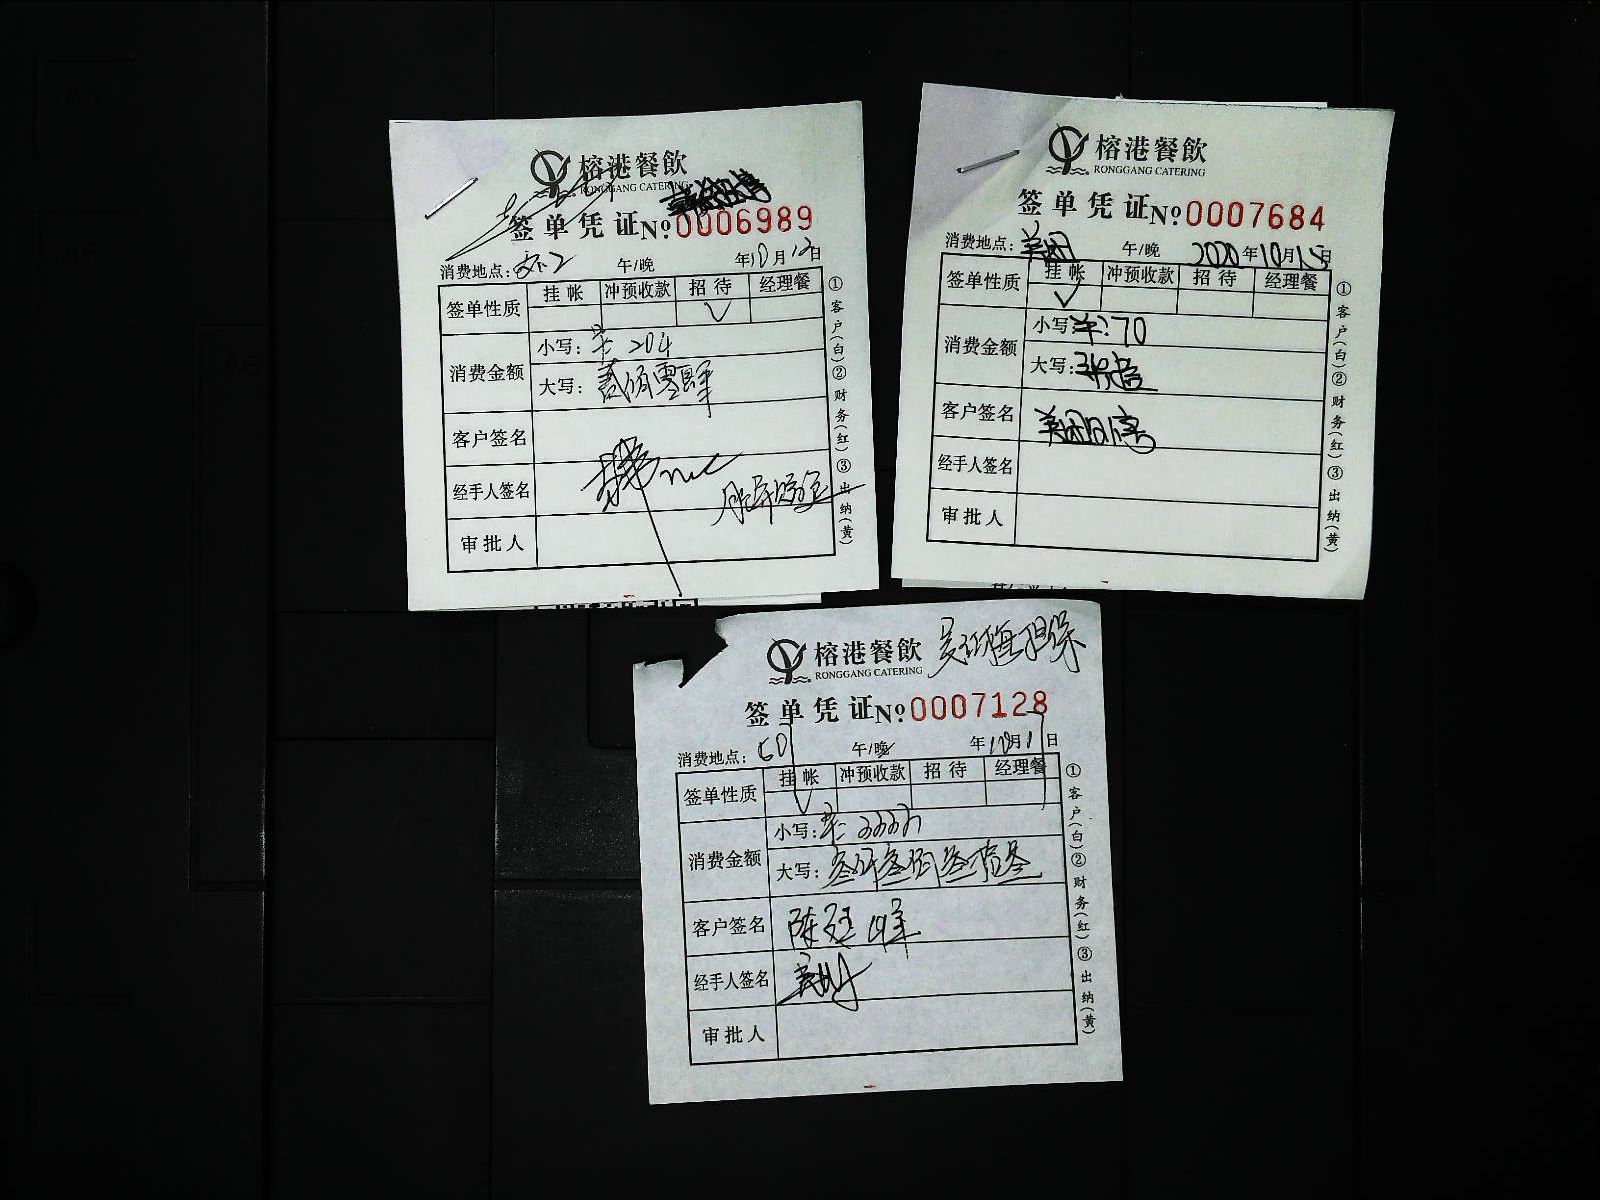 榕港餐飲
RONGGANG CATERING
签单凭证 №0006989
消费地点: 午/晚 年10月12日
签单性质 挂帐 冲预收款 招待 经理餐
√
消费金额 小写: ¥: 204
大写: 贰佰零肆
客户签名
经手人签名
审批人
①客户(白)②财务(红)③出纳(黄)
榕港餐飲
RONGGANG CATERING
签单凭证 №0007684
消费地点: 美团 午/晚 2020年10月15日
签单性质 挂帐 冲预收款 招待 经理餐
√
消费金额 小写: ¥:70
大写:
客户签名 美团
经手人签名
审批人
①客户(白)②财务(红)③出纳(黄)
榕港餐飲
RONGGANG CATERING
担保
签单凭证 №0007128
消费地点: 601 午/晚 年10月11日
签单性质 挂帐 冲预收款 招待 经理餐
√
消费金额 小写: ¥: 3333
大写: 叁仟叁佰叁拾叁
客户签名 陈廷峰
经手人签名
审批人
①客户(白)②财务(红)③出纳(黄)